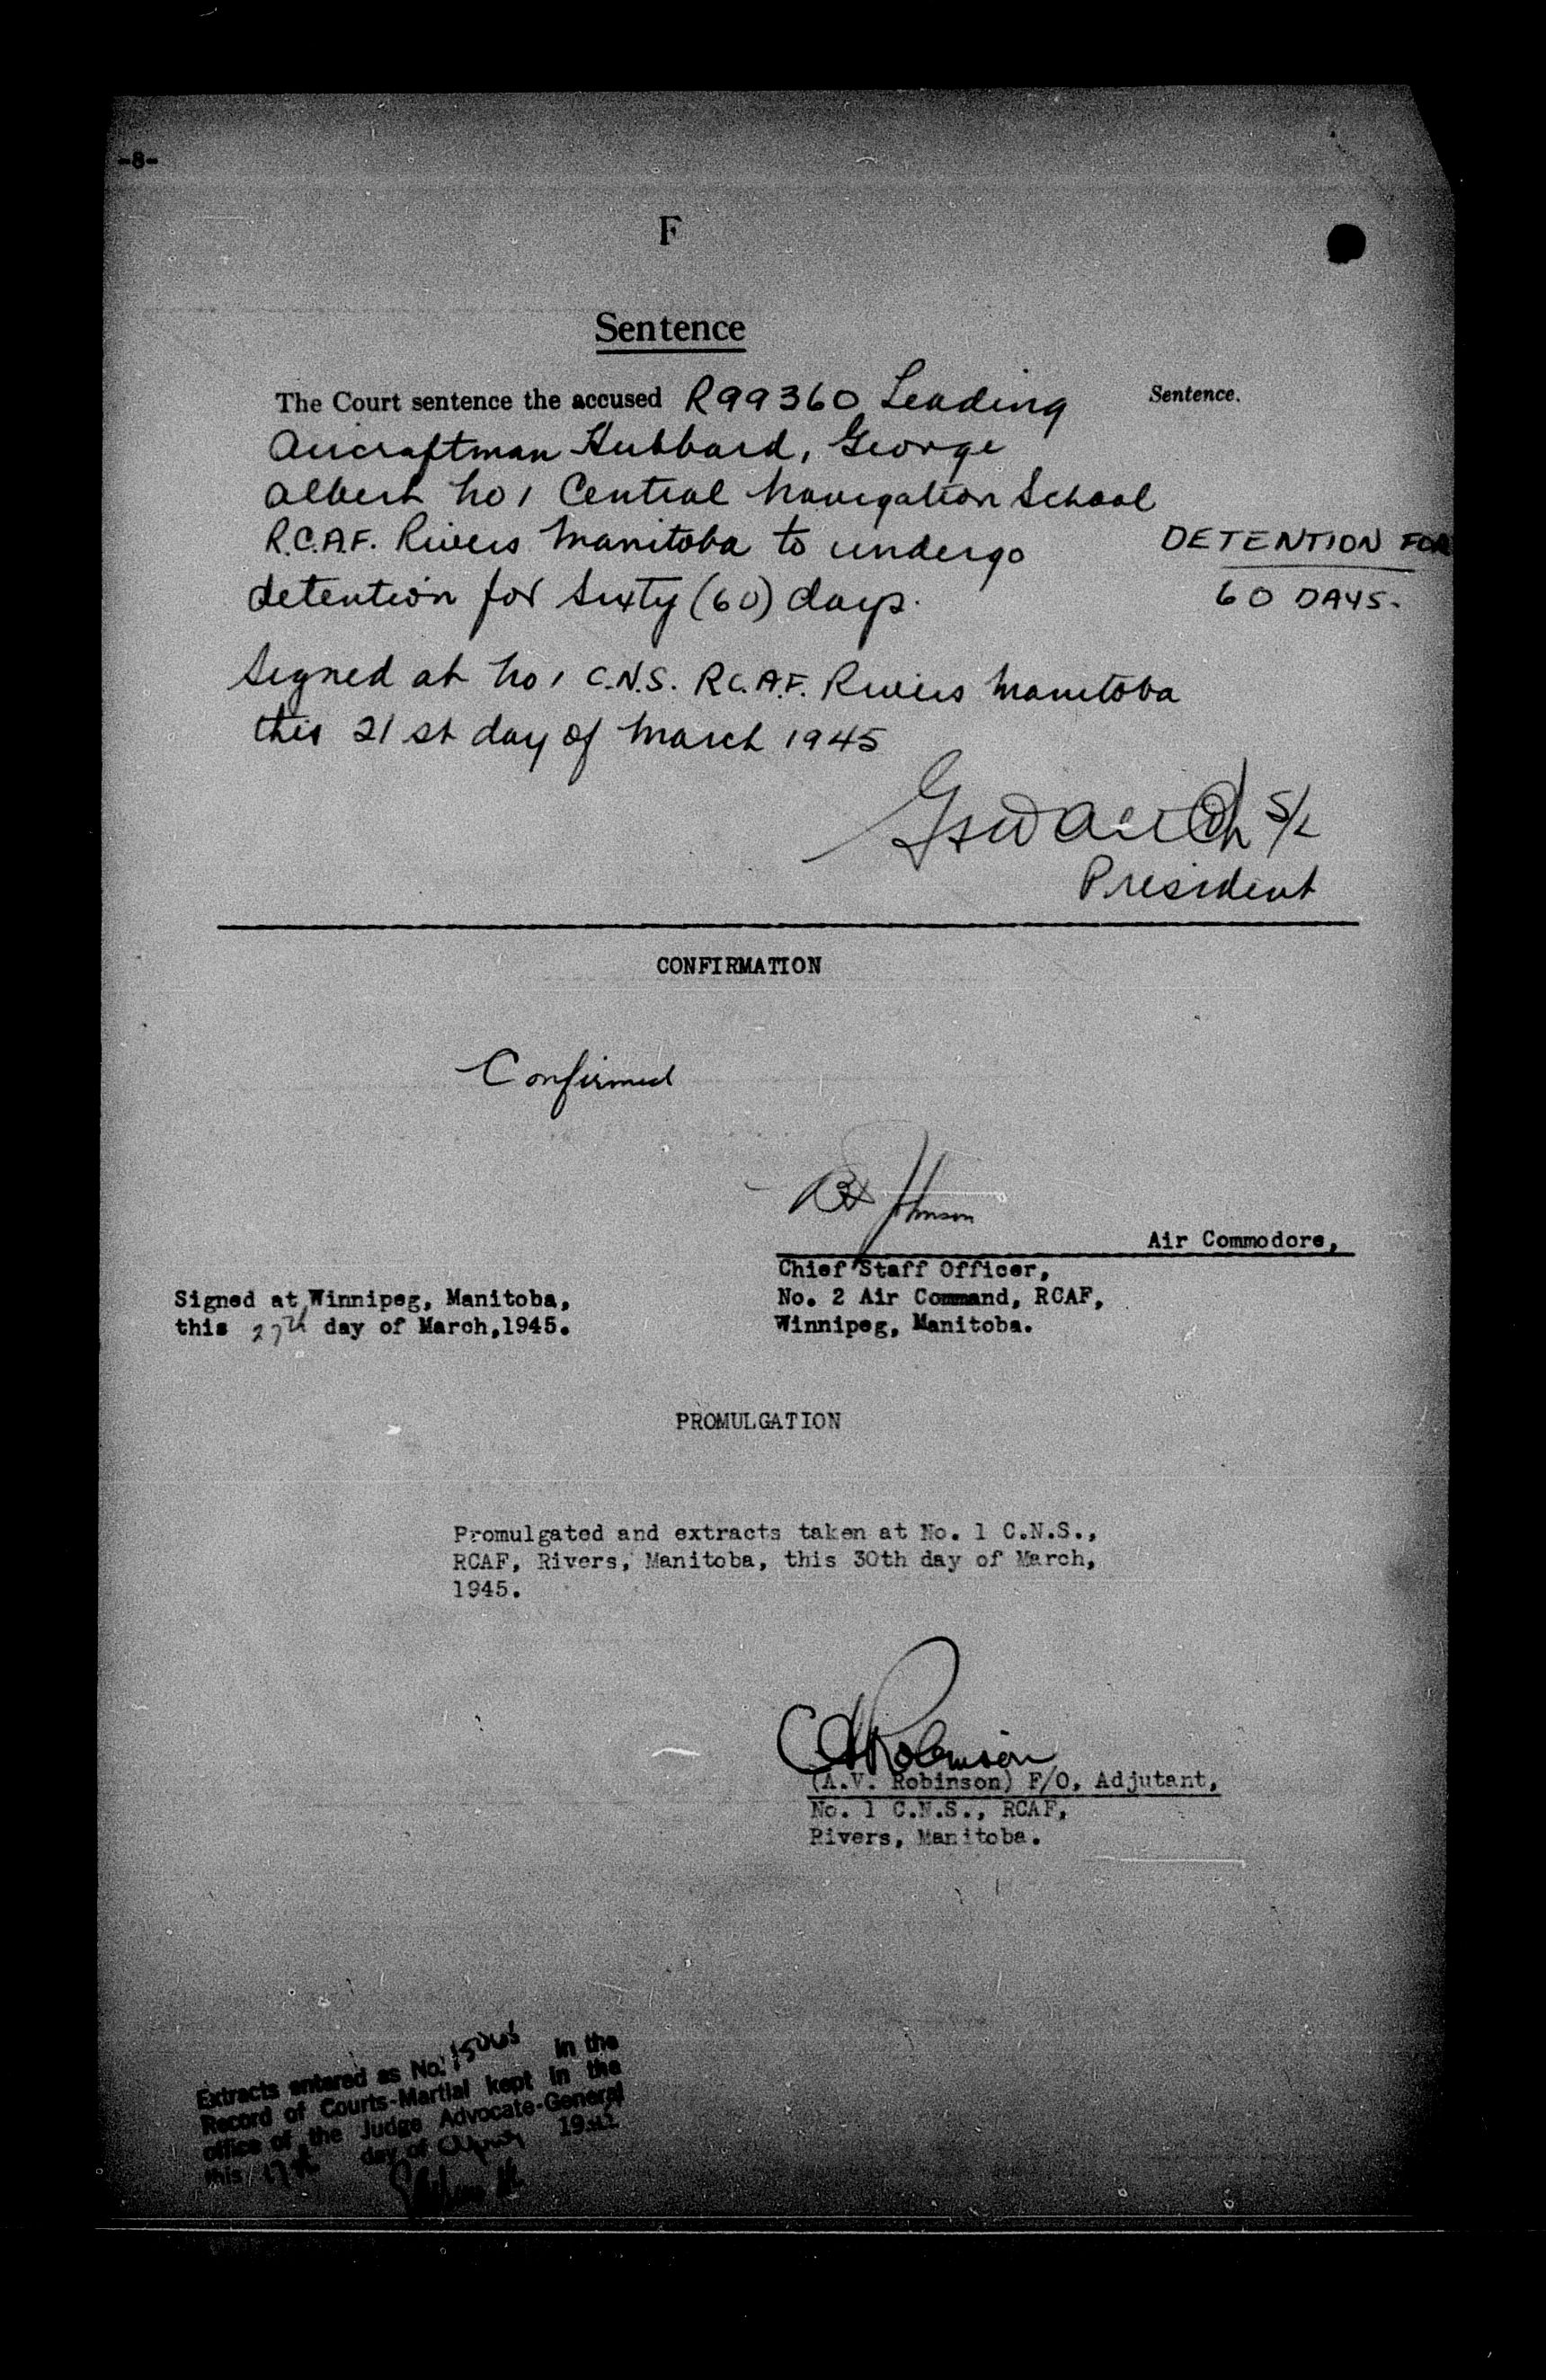 -8-
F
Sentence
The Court sentence the accused R99360 Leading
Sentence.
Aircraftman Hubbard, George
Albert No 1 Central Navigation School
R.C.A.F. Rivers Manitoba to undergo
DETENTION FOR
detention for sixty (60) days.
60 DAYS.
Signed at No 1 C.N.S. R.C.A.F. Rivers Manitoba
this 21st day of March 1945
S/L
President
CONFIRMATION
Confirmed
Johnson
Air Commodore,
Chief Staff Officer,
No. 2 Air Command, RCAF,
Winnipeg, Manitoba.
Signed at Winnipeg, Manitoba,
this 27th day of March, 1945.
PROMULGATION
Promulgated and extracts taken at No. 1 C.N.S.,
RCAF, Rivers, Manitoba, this 30th day of March,
1945.
Robinson
(A.V. Robinson) F/O, Adjutant,
No. 1 C.N.S., RCAF,
Rivers, Manitoba.
Extracts entered as No. in the
Record of Courts-Martial kept in the
office of the Judge Advocate-General
this day of 19